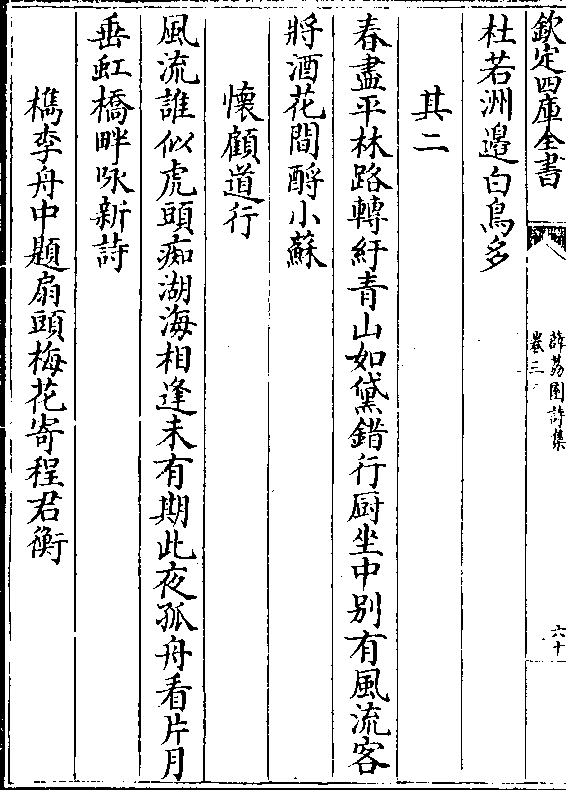 欽定四庫全書
薜荔園詩集
卷三
六十
杜若洲邉白鳥多
其二
春盡平林路轉紆青山如黛錯行厨坐中别有風流客
將酒花間酹小蘇
懷顧道行
風流誰似虎頭痴湖海相逢未有期此夜孤舟看片月
垂虹橋畔咏新詩
檇李舟中題扇頭梅花寄程君衡